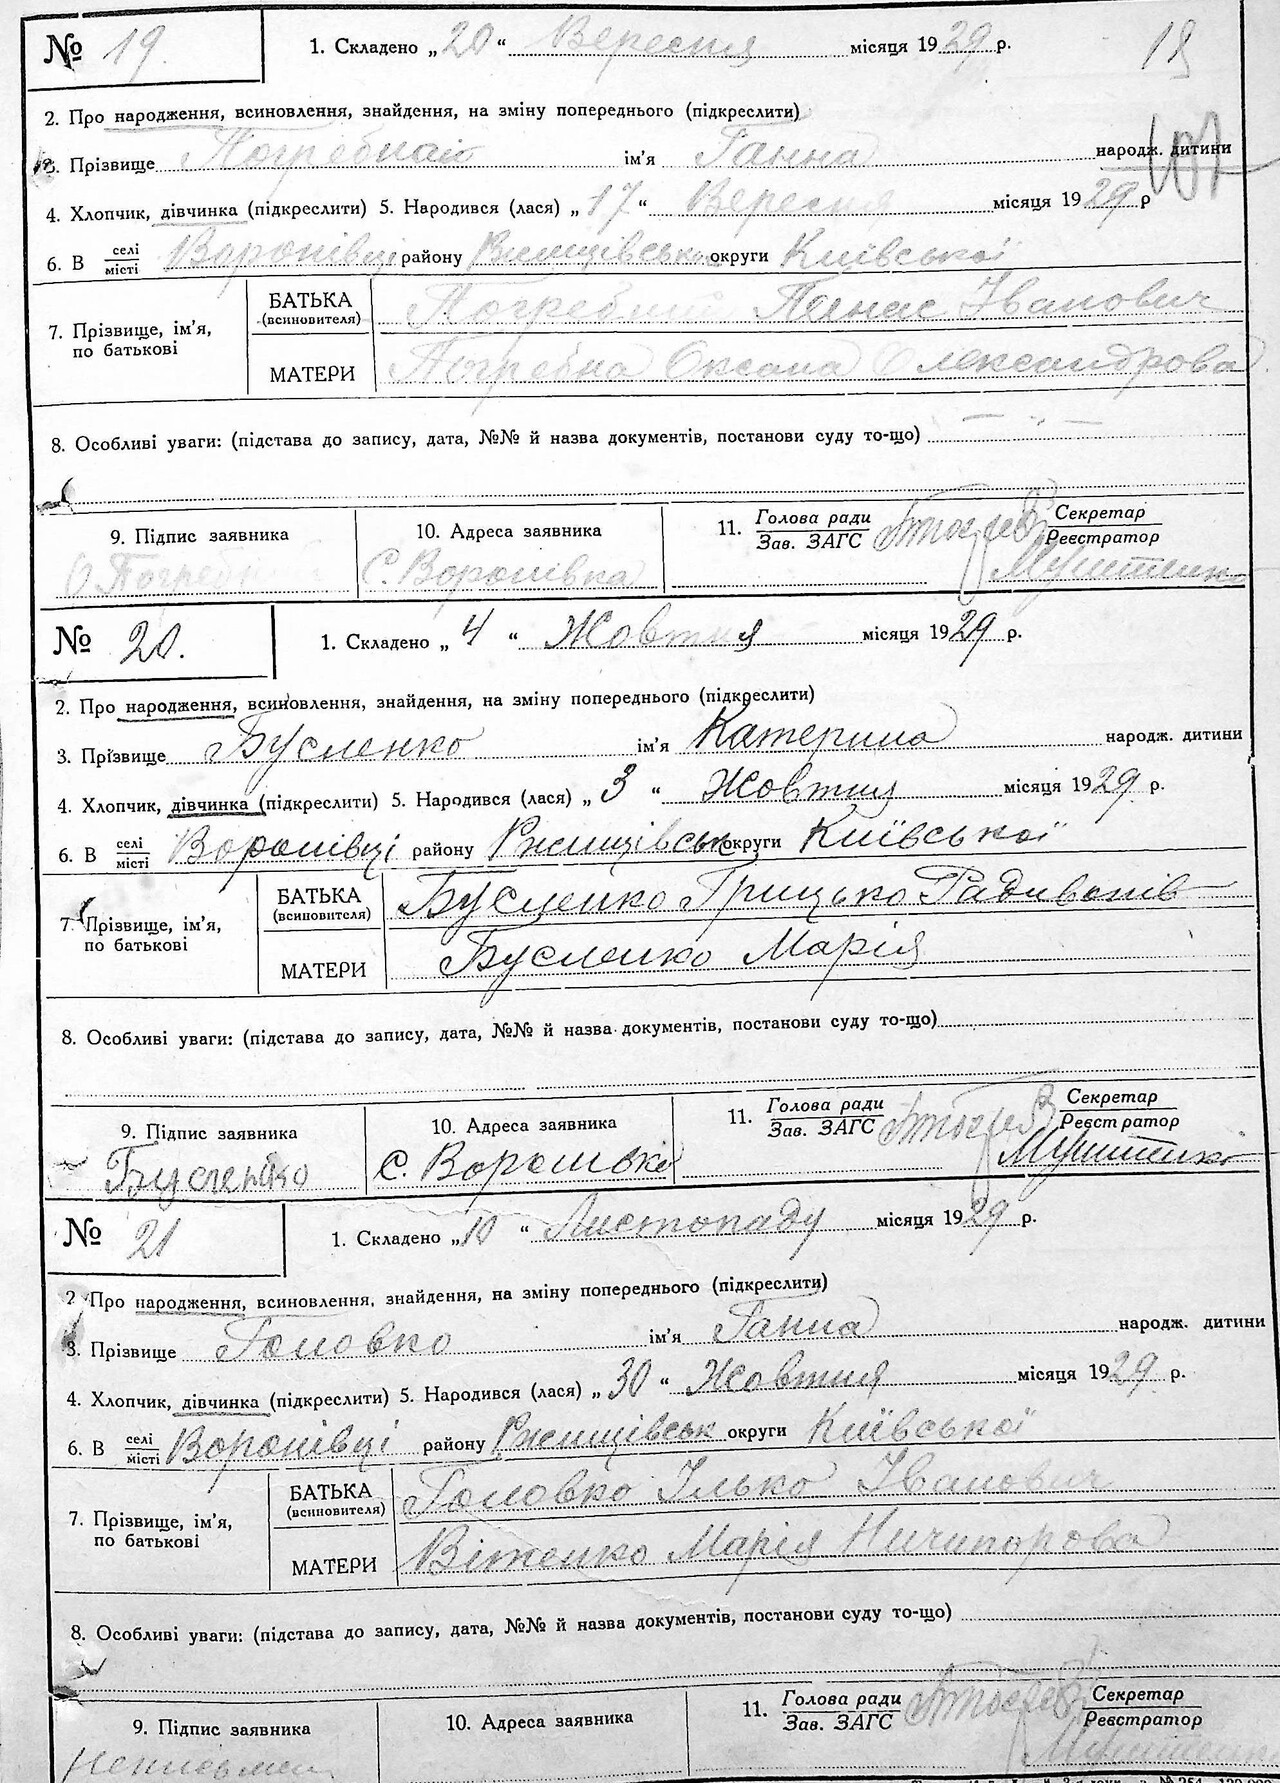 № 19. 1. Складено „ 20 “ Вересня місяця 1929 р.
2. Про народження, всиновлення, знайдення, на зміну попереднього (підкреслити)
3. Прізвище ім'я Ганна народж. дитини
4. Хлопчик, дівчинка (підкреслити) 5. Народився (лася) „ 17 “ Вересня місяця 1929 р
6. В селі/місті Воронівці району округи Київської
7. Прізвище, ім'я, по батькові
БАТЬКА (всиновителя) Погребний Панас Іванович
МАТЕРИ Погребна Оксана Олександрова
8. Особливі уваги: (підстава до запису, дата, №№ й назва документів, постанови суду то-що)
9. Підпис заявника 10. Адреса заявника 11. Голова ради/Зав. ЗАГС Секретар/Реєстратор
С. Воронівка
№ 20. 1. Складено „ 4 “ Жовтня місяця 1929 р.
2. Про народження, всиновлення, знайдення, на зміну попереднього (підкреслити)
3. Прізвище Бусленко ім'я Катерина народж. дитини
4. Хлопчик, дівчинка (підкреслити) 5. Народився (лася) „ 3 “ Жовтня місяця 1929 р.
6. В селі/місті Воронівці району Ржищівськ округи Київської
7. Прізвище, ім'я, по батькові
БАТЬКА (всиновителя) Бусленко Грицько Радивонів
МАТЕРИ Бусленко Марія
8. Особливі уваги: (підстава до запису, дата, №№ й назва документів, постанови суду то-що)
9. Підпис заявника 10. Адреса заявника 11. Голова ради/Зав. ЗАГС Секретар/Реєстратор
Бусленко С. Воронівка
№ 21 1. Складено „ 10 “ Листопаду місяця 1929 р.
2. Про народження, всиновлення, знайдення, на зміну попереднього (підкреслити)
3. Прізвище Головко ім'я Ганна народж. дитини
4. Хлопчик, дівчинка (підкреслити) 5. Народився (лася) „ 30 “ Жовтня місяця 1929 р.
6. В селі/місті Воронівці району Ржищівськ округи Київської
7. Прізвище, ім'я, по батькові
БАТЬКА (всиновителя) Головко Ілько Іванович
МАТЕРИ Вітенко Марія Ничипорова
8. Особливі уваги: (підстава до запису, дата, №№ й назва документів, постанови суду то-що)
9. Підпис заявника 10. Адреса заявника 11. Голова ради/Зав. ЗАГС Секретар/Реєстратор